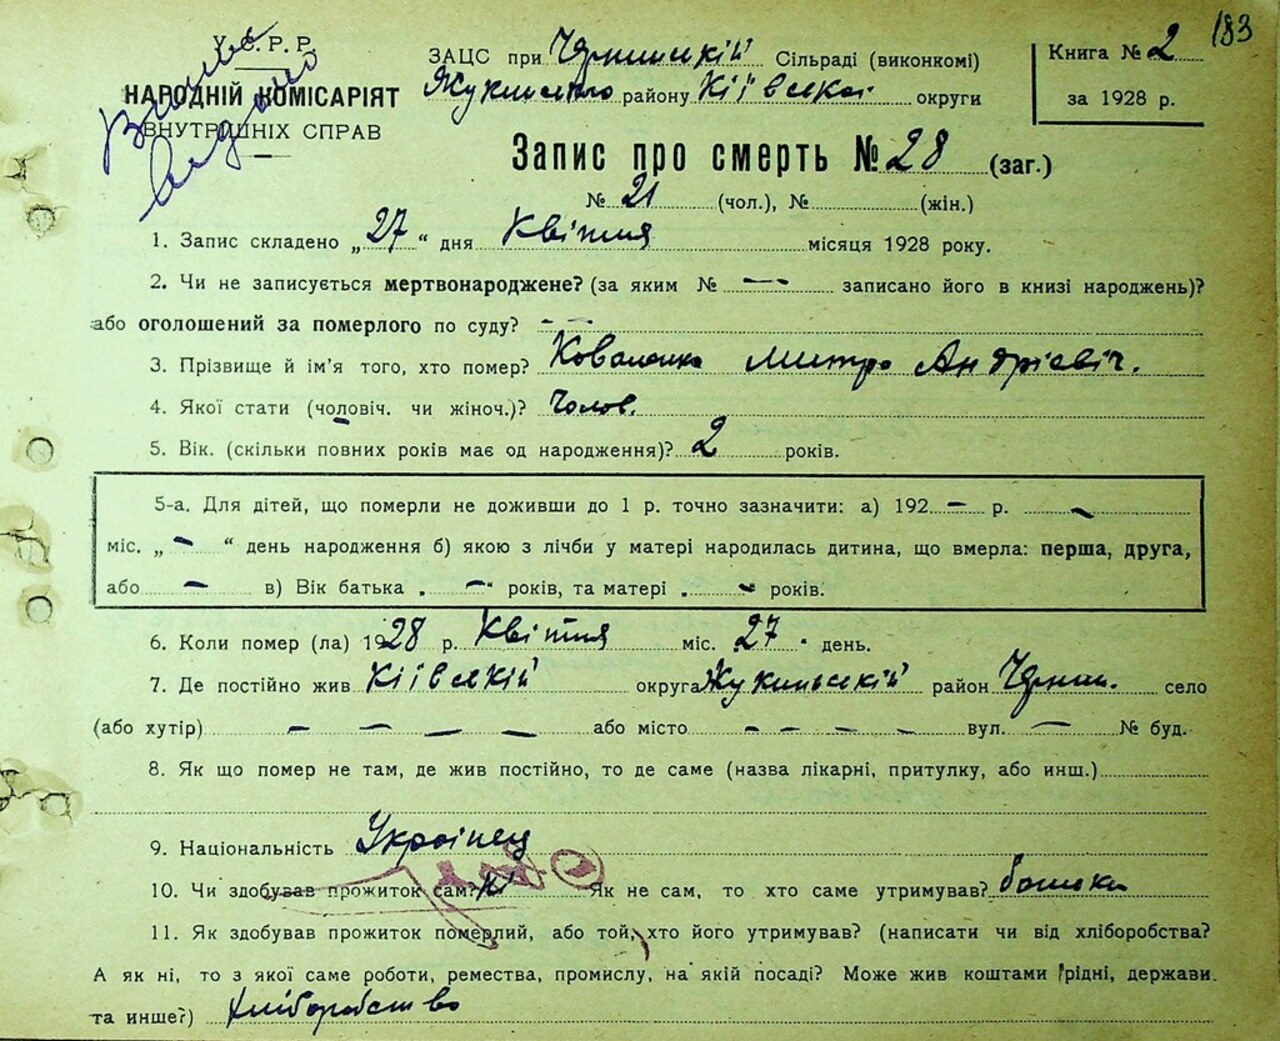 183
У. С. Р. Р.
НАРОДНІЙ КОМІСАРІЯТ
ВНУТРІШНІХ СПРАВ
видано
ЗАЦС при Сільраді (виконкомі)
району Київської округи
Книга № 2
за 1928 р.
Запис про смерть № 28 (заг.)
№ 21 (чол.), № (жін.)
1. Запис складено „27“ дня Квітня місяця 1928 року.
2. Чи не записується мертвонароджене? (за яким № — записано його в книзі народжень)?
або оголошений за померлого по суду? - -
3. Прізвище й ім'я того, хто помер? Коваленко Митро Андрієвіч.
4. Якої стати (чоловіч. чи жіноч.)? Чолов.
5. Вік. (скільки повних років має од народження)? 2 років.
5-а. Для дітей, що померли не доживши до 1 р. точно зазначити: а) 192 – р. –
міс. „ – “ день народження б) якою з лічби у матері народилась дитина, що вмерла: перша, друга,
або – в) Вік батька „ – “ років, та матері „ – років.
6. Коли помер (ла) 1928 р. Квітня міс. 27 " день.
7. Де постійно жив Київській округа Жукинській район Чернин. село
(або хутір) – – – – або місто – – – – вул. — № буд.
8. Як що помер не там, де жив постійно, то де саме (назва лікарні, притулку, або инш.)
9. Національність Українец
10. Чи здобував прожиток сам? Ні Як не сам, то хто саме утримував? батьки
11. Як здобував прожиток померлий, або той, хто його утримував? (написати чи від хліборобства?
А як ні, то з якої саме роботи, ремества, промислу, на якій посаді? Може жив коштами рідні, держави
та инше?) хліборобство